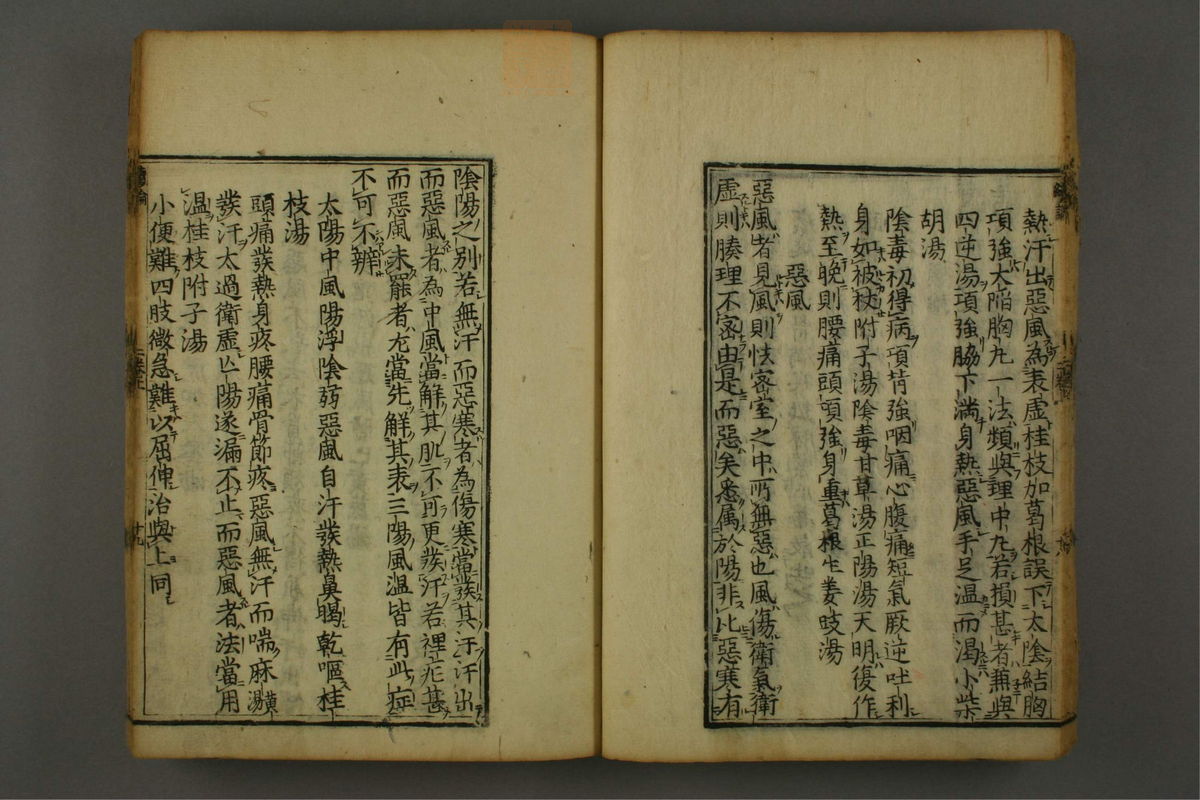 熱汗出惡風為表虛桂枝加葛根誤下太陰結胸
項強大陷胸九一法頻與理中九若損甚者兼與
四逆湯項強脇下満身熱惡風手足温而渴小柴
胡湯
陰毒初得病項背強咽痛心腹痛短氣厥逆吐利
身如被杖附子湯陰毒甘草湯正陽湯天明復作
熱至晚則腰痛頭項強身重葛根生姜豉湯
惡風
惡風者見風則怯密室之中所無惡也風傷衛氣衛
虛則腠理不密由是而惡矣悉属於陽非比惡寒有
陰陽之別若無汗而惡寒者為傷寒當發其汗汗出
而惡風者為中風當解其肌不可更發汗若裡症甚
而惡風未罷者尤當先解其表三陽風温皆有此症
不可不辨
太陽中風陽浮陰弱惡風自汗發熱鼻鳴乾嘔桂
枝湯
頭痛發熱身疼腰痛骨節疼惡風無汗而喘麻黃湯
發汗太過衛虛亡陽遂漏不止而惡風者法當用
温桂枝附子湯
小便難四肢微急難以屈伸治與上同